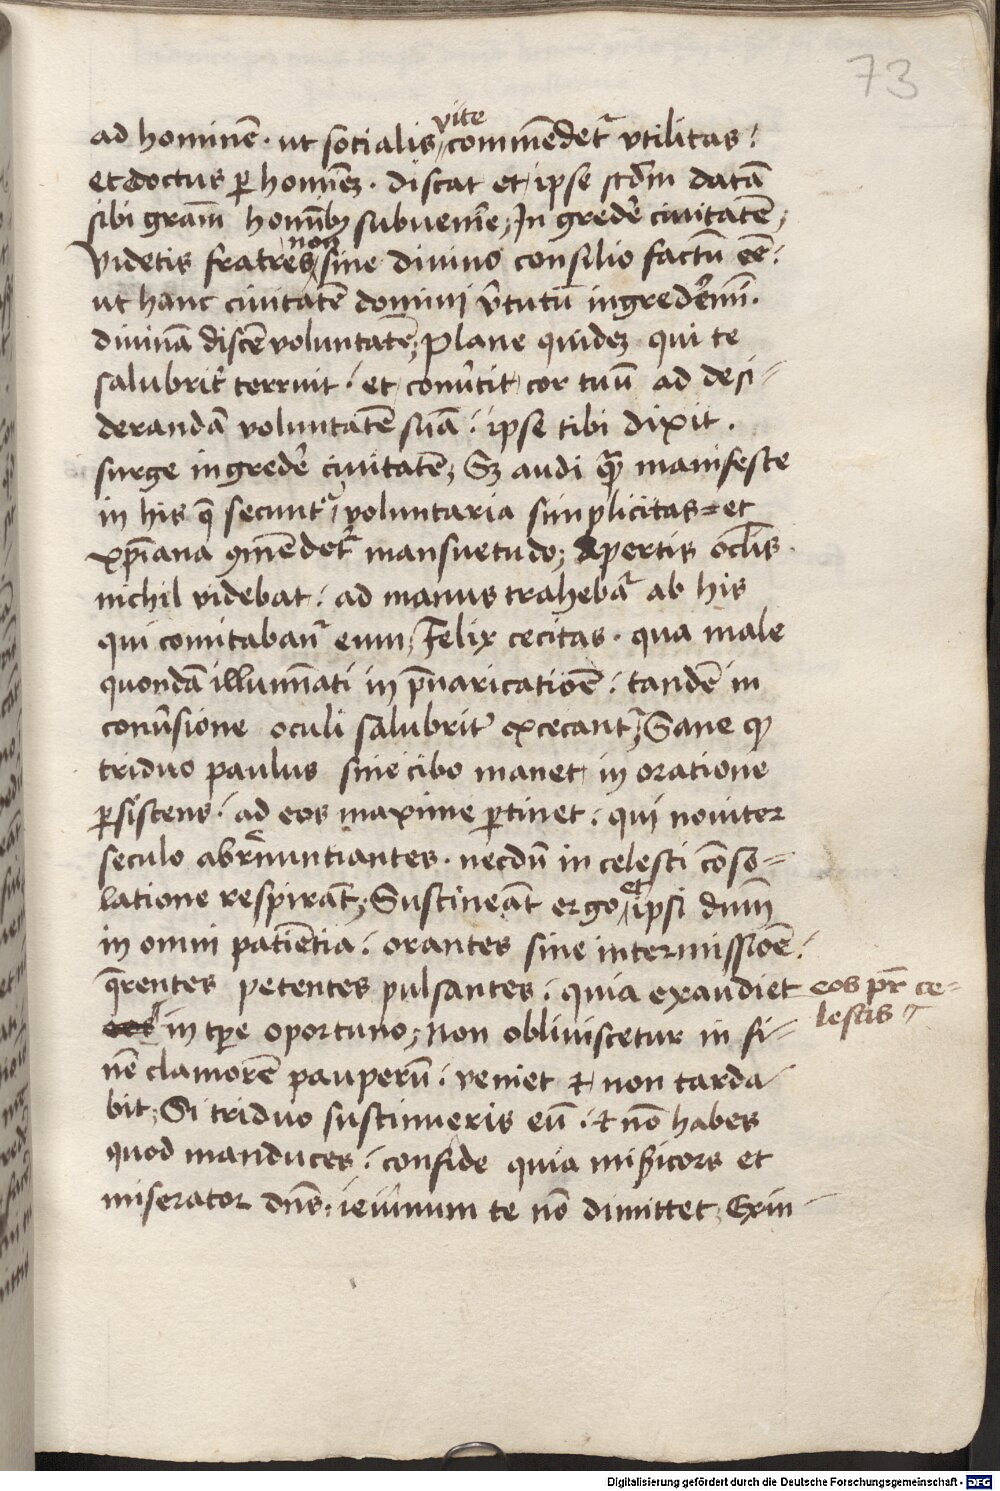 73
ad hominē · ut socialis vite cōmēdetr̄ vtilitas :
et doctus ꝑ hoīnēꝫ · discat et ipse scd̄m datā
sibi grām homībꝫ subuenire ; Ingredē ciuitatē ;
Videtis fratres non sine diuino consilio factū eē :
ut hanc ciuitatē domini v̄tutū ingredēmī ·
diuinā discē voluntatē ; Plane quideꝫ qui te
salubrit̄ terruit : et conūtit cor tuū ad desi⸗
derandā voluntatē suā : ipse tibi dixit ·
surge ingredē ciuitatē ; Sꝫ audi qm̄ manifeste
in his q̄ secunt̄ voluntaria simplicitas et
xp̄iana ꝯmēdet̄ mansuetudo ; Apertis oclīs ·
nichil videbat : ad manus trahebat̄ ab his
qui comitabant̄ eum ; Felix cecitas · qua male
quondā illumīati in p̄uaricatiōē : tandē in
conūsione oculi salubrit̄ excecant̄ ; Sane ꝙ
triduo paulus sine cibo manet in oratione
ꝑsistens : ad eos maxime ꝑtinet : qui nouiter
seculo abrenuntiantes · necdū in celesti cōso⸗
latione respirāt ; Sustineāt ergo et ipsi dn̄m
in omni patiētia : orantes sine intermissiōē :
q̄rentes petentes pulsantes : quia exaudiet eos pr̄ ce⸗
lestis
in tꝑe oportuno ; non obliuiscetur in fi⸗
nē clamorē pauperū : veniet et non tarda
bit ; Si triduo sustinueris eū : et nō habes
quod manduces : confide quia mis̄icors et
miserator dn̄s : ieiunum te nō dimittet ; Exin
Digitalisierung gefördert durch die Deutsche Forschungsgemeinschaft - DFG